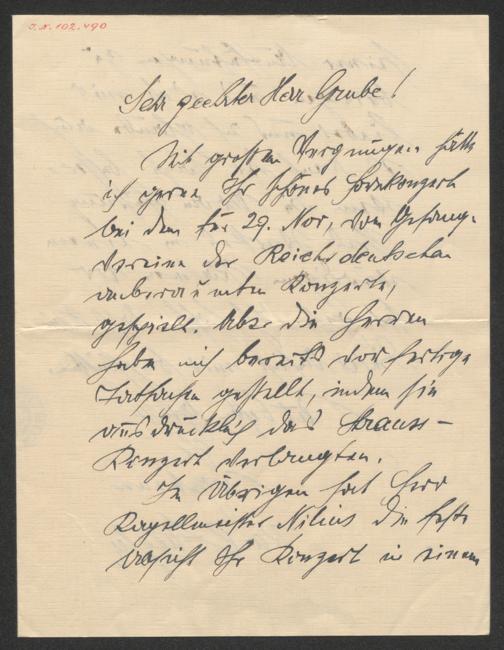 J.N. 102.490
Sehr geehrter Herr Grube!
Mit großem Vergnügen hätte
ich gerne Ihr schönes Hornkonzert
bei dem für 29. Nov. vom Gesang-
vereine der Reichsdeutschen
anberaumten Konzerte,
gespielt. Aber die Herren
haben mich bereits vor fertige
Tatsachen gestellt, indem sie
ausdrücklich das Strauss-
Konzert verlangten.
Im Übrigen hat Herr
Kapellmeister Nilius die feste
Absicht Ihr Konzert in einem